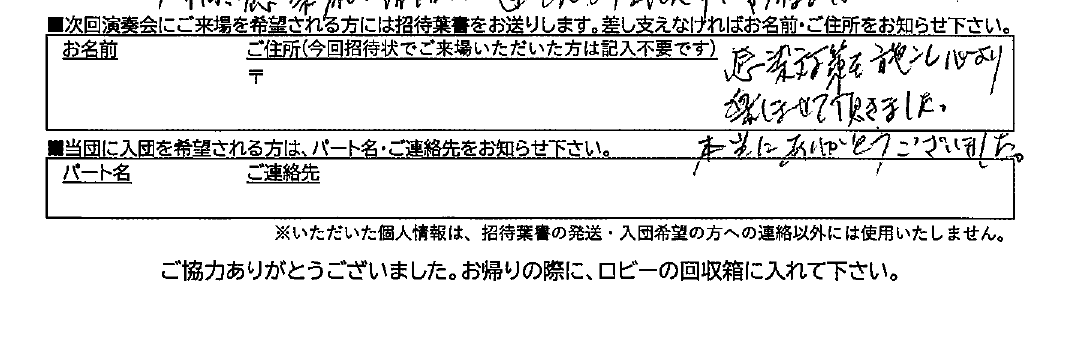 ■次回演奏会にご来場を希望される方には招待葉書をお送りします。差し支えなければお名前・ご住所をお知らせ下さい。
お名前 ご住所(今回招待状でご来場いただいた方は記入不要です)
〒
感染対策を施し心より
楽しませて頂きました。
本当にありがとうございました。
■当団に入団を希望される方は、パート名・ご連絡先をお知らせ下さい。
パート名 ご連絡先
※いただいた個人情報は、招待葉書の発送・入団希望の方への連絡以外には使用いたしません。
ご協力ありがとうございました。お帰りの際に、ロビーの回収箱に入れて下さい。